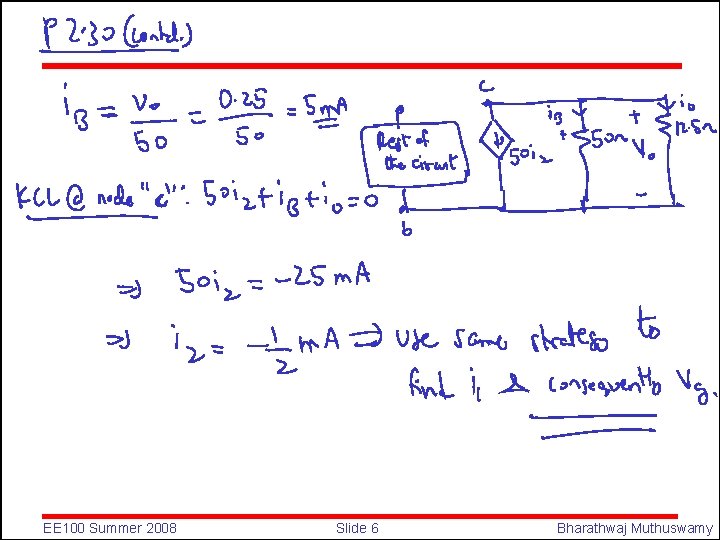 P 2.30 (contd.)
i_B = V_o/50 = 0.25/50 = 5mA
KCL @ node "c": 50i_2 + i_B + i_o = 0
Rest of
the circuit
b
c
50i_2
i_B
+
50Ω
+
V_o
-
i_o
12.5Ω
⇒ 50i_2 = -25 mA
⇒ i_2 = -1/2 mA ⇒ use same strategy to
find i_1 & consequently V_g.
EE100 Summer 2008
Slide 6
Bharathwaj Muthuswamy